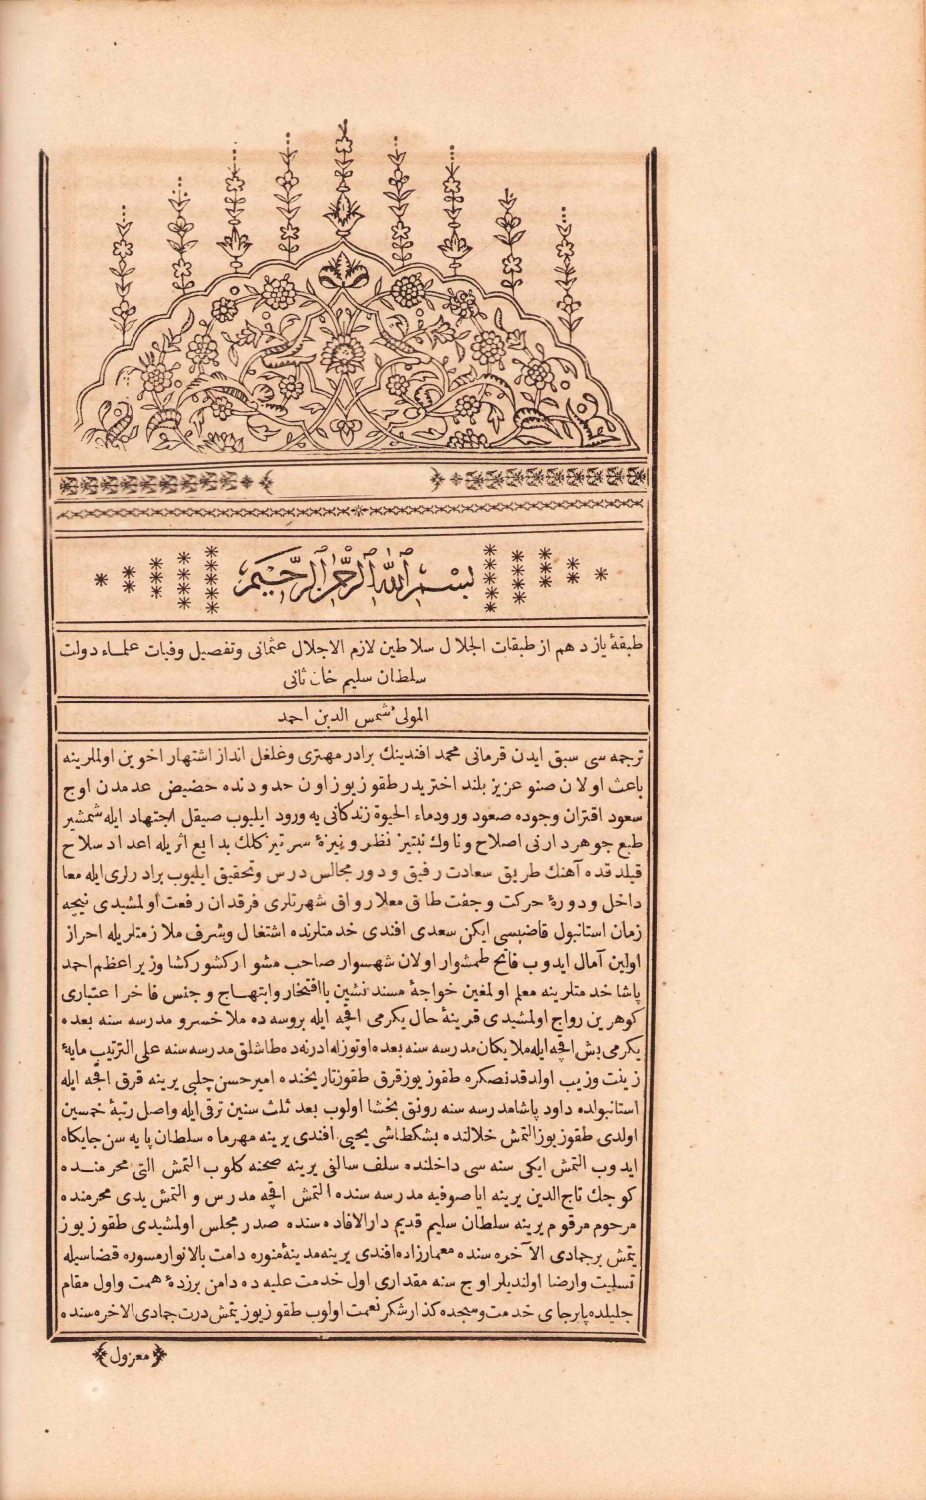 بسم الله الرحمن الرحيم
طبقهٔ یازدهم از طبقات الجلال سلاطین لازم الاجلال عثمانی وتفصیل وفیات علماء دولت
سلطان سلیم خان ثانی
المولی شمس الدین احمد
ترجمه سی سبق ایدن قرمانی محمد افندینك برادر مهتری وغلغل انداز اشتهار اخوین اولملرینه
باعث اولان صنو عزیز بلند اختریدر طقوز یوز اون حدودنده حضیض عدمدن اوج
سعود اقتران وجوده صعود ورودماء الحیوة زندکانی یه ورود ایلیوب صیقل اجتهاد ایله شمشیر
طبع جوهردارنی اصلاح وناوك نبتیز نظر ونیزهٔ سرتیز کلك بدایع اثریله اعداد سلاح
قیلدقده آهنك طریق سعادت رفیق ودور مجالس درس وتحقیق ایلیوب برادرلری ایله معا
داخل ودورهٔ حرکت وجفت طاق معلا رواق شهرتلری فرقدان رفعت اولمشیدی نیجه
زمان استانبول قاضیسی ایکن سعدی افندی خدمتلرنده اشتغال وشرف ملازمتلریله احراز
اولین آمال ایدوب فاتح طمشوار اولان شهسوار صاحب مشوار کشورکشا وزیر اعظم احمد
پاشا خدمتلرینه معلم اولمغین خواجهٔ مسندنشین باافتخار وابتهاج وجنس فاخر اعتباری
کوهرین رواج اولمشیدی قرینهٔ حال یکرمی اقچه ایله بروسه ده ملا خسرو مدرسه سنه بعده
یکرمی بش اقچه ایله ملا یکان مدرسه سنه بعده اوتوزله ادرنه ده طاشلق مدرسه سنه علی الترتیب مایهٔ
زینت وزیب اولدقدنصکره طقوز یوز قرق طقوز تاریخنده امیر حسن چلبی یرینه قرق اقچه ایله
استانبولده داود پاشا مدرسه سنه رونق بخشا اولوب بعد ثلث سنین ترقی ایله واصل رتبهٔ خمسین
اولدی طقوز یوز التمش خلالنده بشکطاشی یحیی افندی یرینه مهرماه سلطان پایه سن جایکاه
ایدوب التمش ایکی سنه سی داخلنده سلف سالفی یرینه صحنه کلوب التمش التی محرمنده
کوجك تاج الدین یرینه ایاصوفیه مدرسه سنده التمش اقچه مدرس و التمش یدی محرمنده
مرحوم مرقوم یرینه سلطان سلیم قدیم دارالافاده سنده صدر مجلس اولمشیدی طقوز یوز
یتمش بر جمادی الآخره سنده معمارزاده افندی یرینه مدینهٔ منوره دامت بالانوار مسوره قضاسیله
تسلیت وارضا اولندیلر اوج سنه مقداری اول خدمت علیه ده دامن برزدهٔ همت واول مقام
جلیلده پابرجای خدمت وسجده کذار شکر نعمت اولوب طقوز یوز یتمش درت جمادی الاخره سنده
معزول